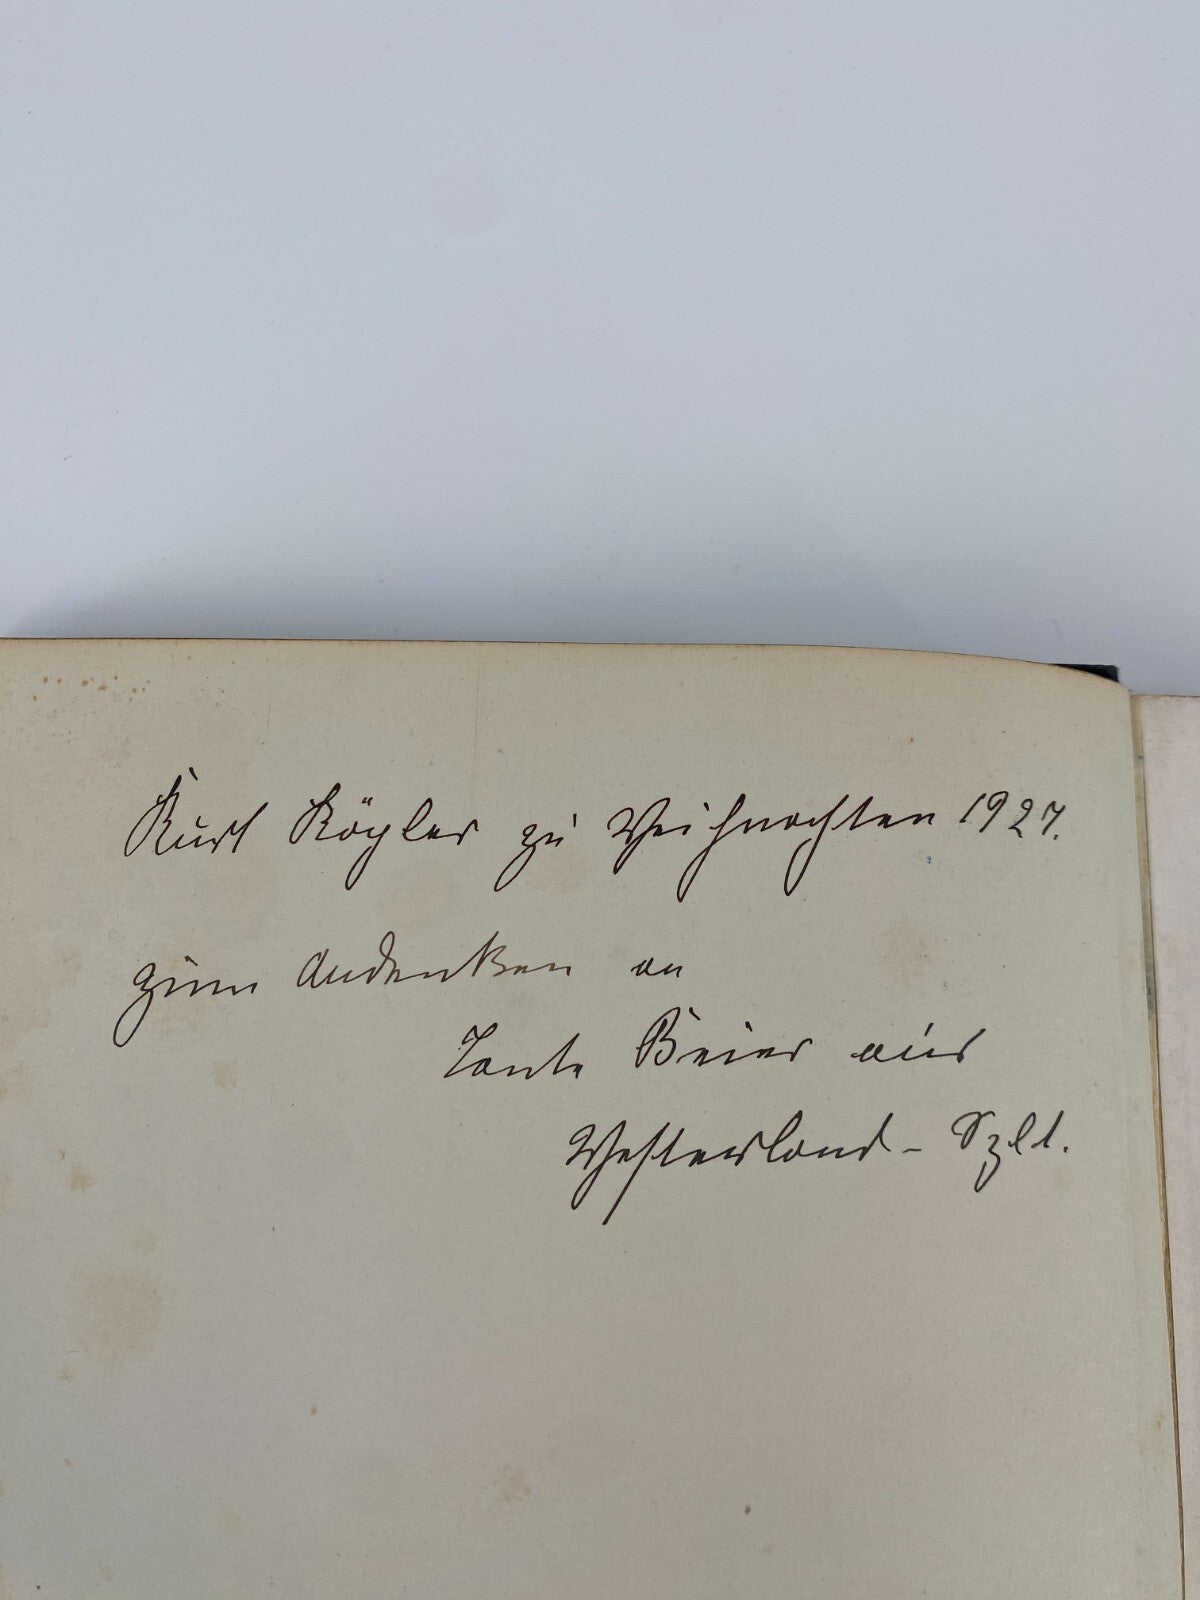 Kurt Kögler zu Weihnachten 1927.
zum Andenken an
Tante Beier aus
Westerland - Sylt.